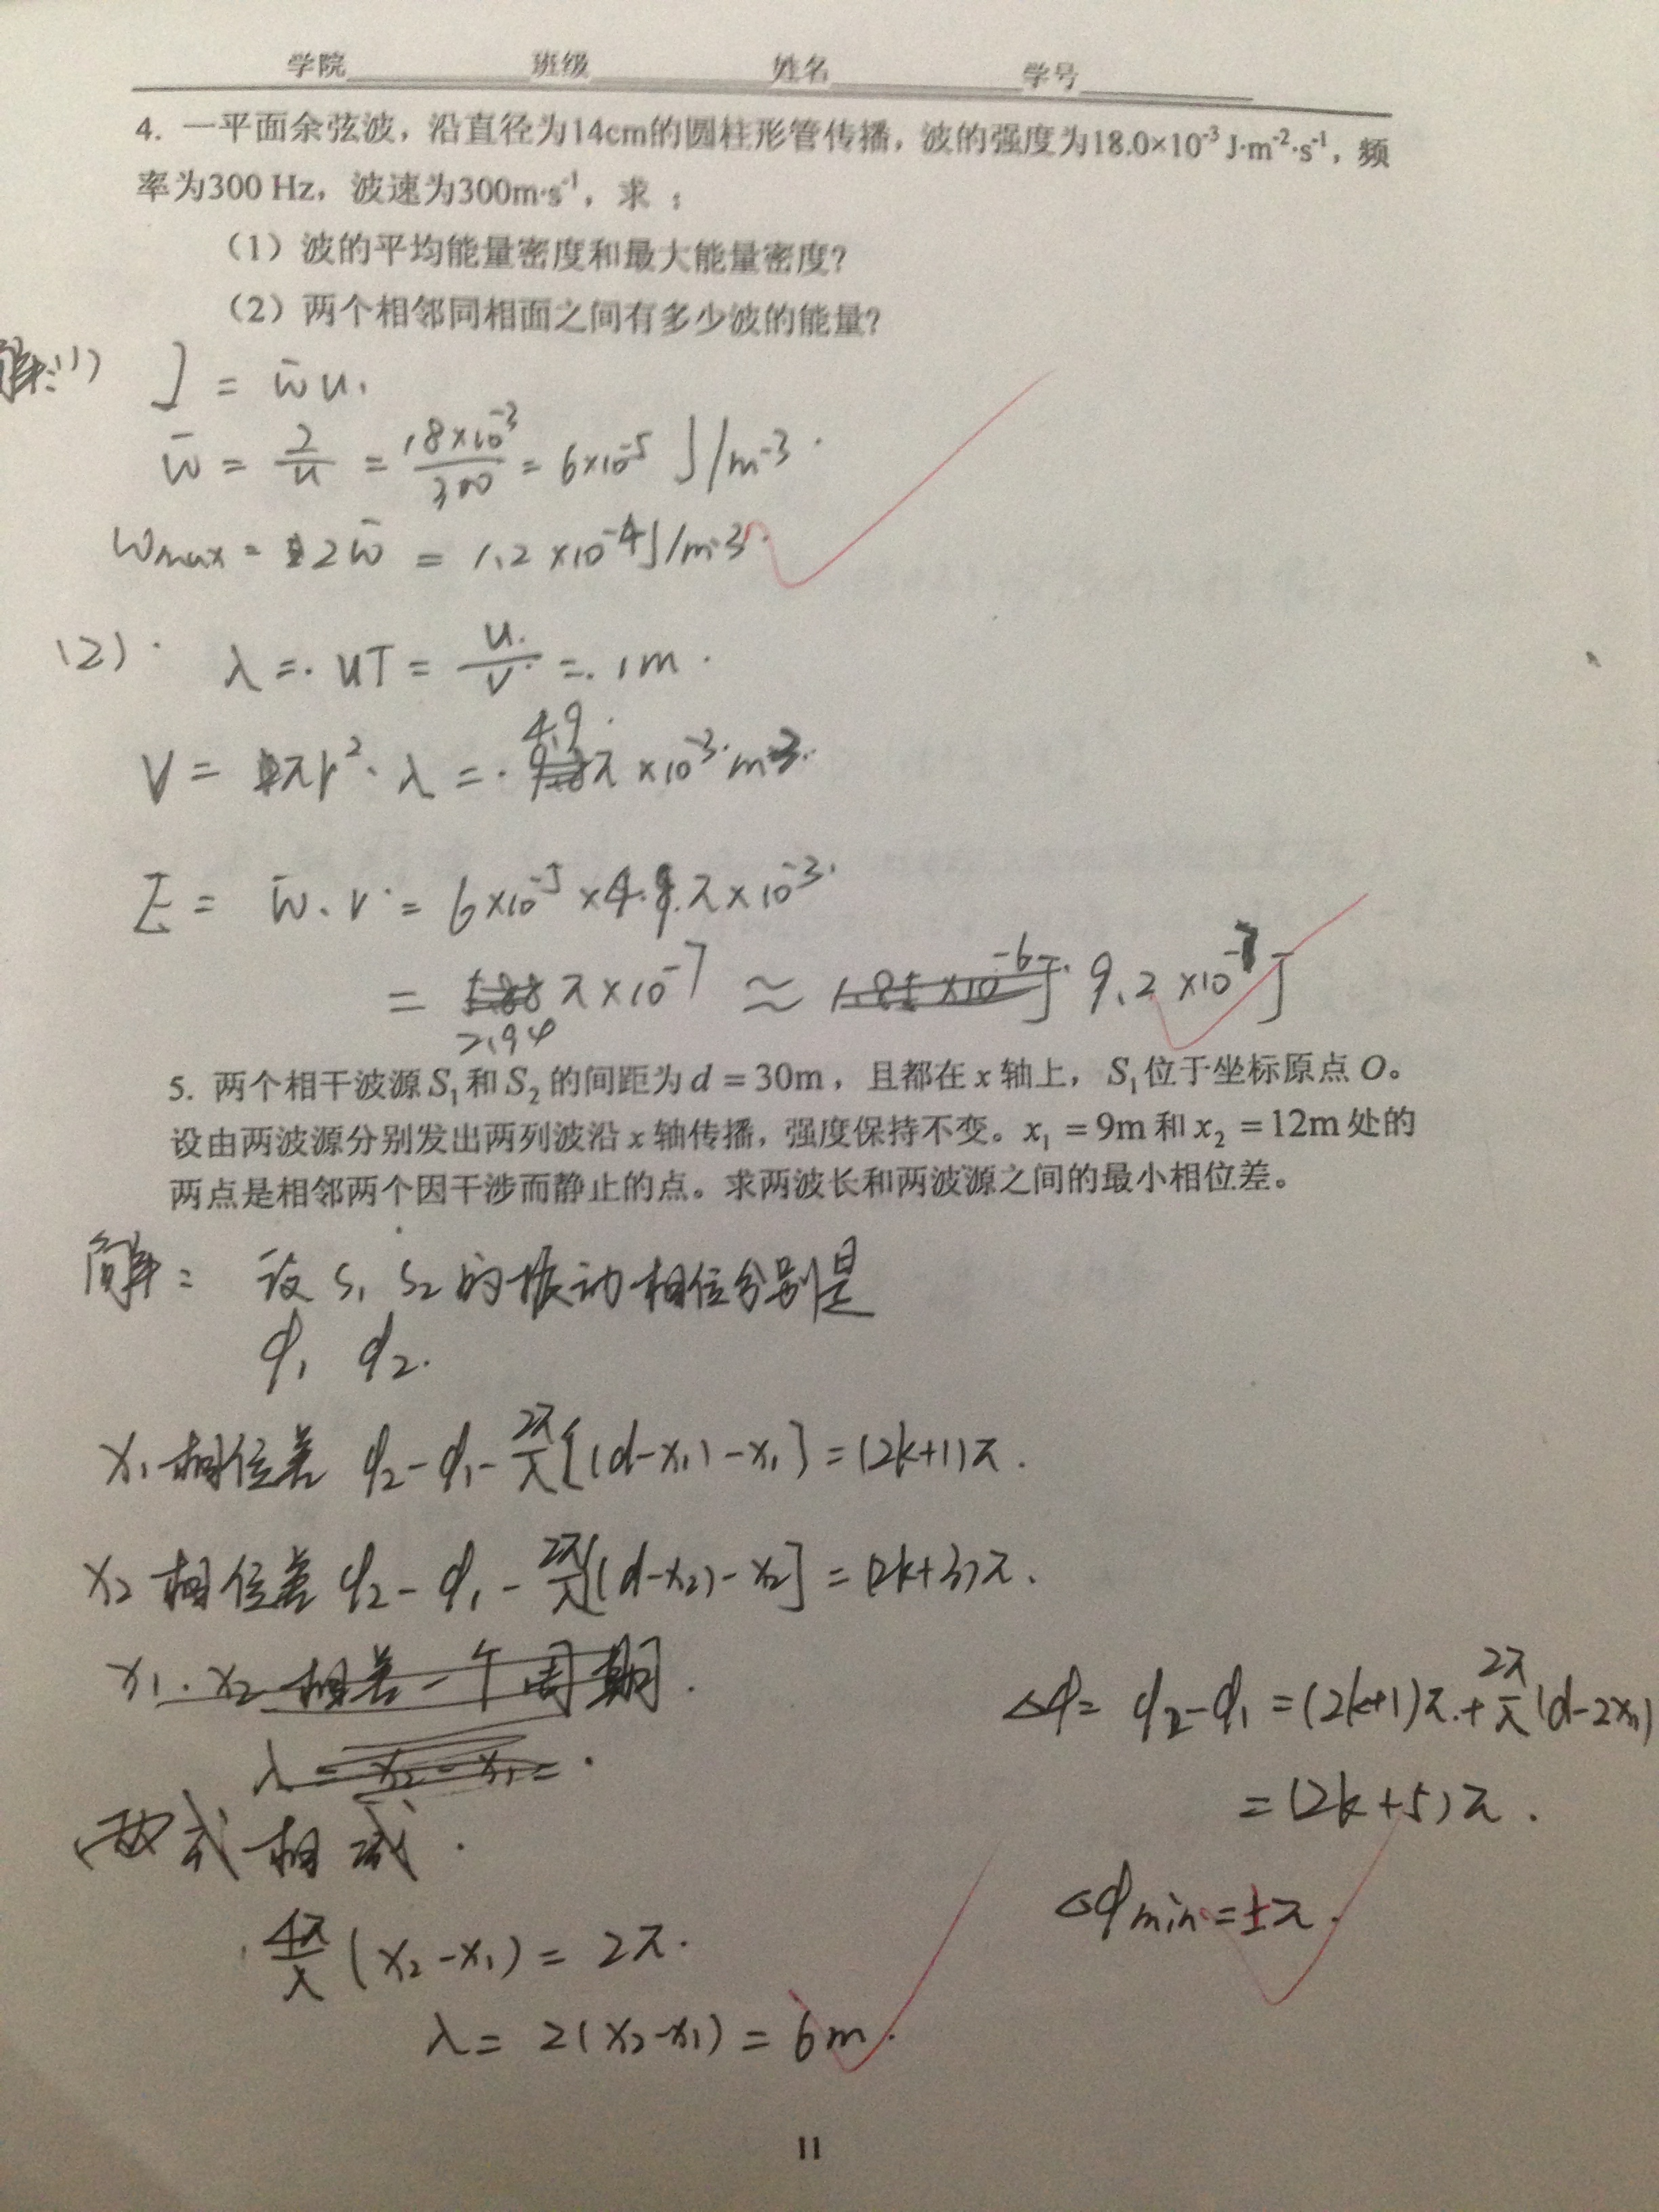 学院 班级 姓名 学号
4. 一平面余弦波，沿直径为14cm的圆柱形管传播，波的强度为18.0×10⁻³ J·m⁻²·s⁻¹，频
率为300 Hz，波速为300m·s⁻¹，求：
（1）波的平均能量密度和最大能量密度？
（2）两个相邻同相面之间有多少波的能量？
解:(1) I = w̄u.
w̄ = I/u = 18×10⁻³/300 = 6×10⁻⁵ J/m⁻³.
wmax = 2w̄ = 1.2×10⁻⁴J/m⁻³.
(2). λ = uT = u/ν = 1m.
V = πr²·λ = 4.9π×10⁻³ m³.
E = w̄·V = 6×10⁻⁵×4.9π×10⁻³.
= 2.94π×10⁻⁷ ≈ 9.2×10⁻⁷J
5. 两个相干波源S₁和S₂的间距为d = 30m，且都在x轴上，S₁位于坐标原点O。
设由两波源分别发出两列波沿x轴传播，强度保持不变。x₁ = 9m和x₂ = 12m处的
两点是相邻两个因干涉而静止的点。求两波长和两波源之间的最小相位差。
解: 设 S₁ S₂的振动相位分别是
φ₁ φ₂.
x₁相位差 φ₂-φ₁-2π/λ[(d-x₁)-x₁] = (2k+1)π.
x₂相位差 φ₂-φ₁-2π/λ[(d-x₂)-x₂] = (2k+3)π.
x₁. x₂相差一个周期.
λ = x₂-x₁=.
两式相减.
4π/λ(x₂-x₁) = 2π.
λ = 2(x₂-x₁) = 6m.
Δφ= φ₂-φ₁ = (2k+1)π+2π/λ(d-2x₁)
= (2k+5)π.
Δφmin=±π.
11